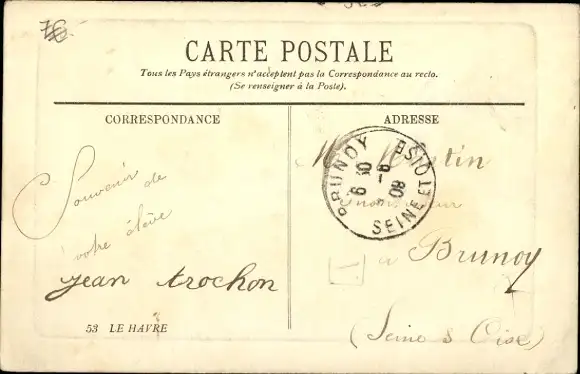 CARTE POSTALE
Tous les Pays étrangers n'acceptent pas la Correspondance au recto.
(Se renseigner à la Poste).
CORRESPONDANCE
ADRESSE
Souvenir de
votre élève
jean trochon
53 LE HAVRE
M Martin
à Brunoy
(Seine & Oise)
BRUNOY
SEINE ET OISE
6 30